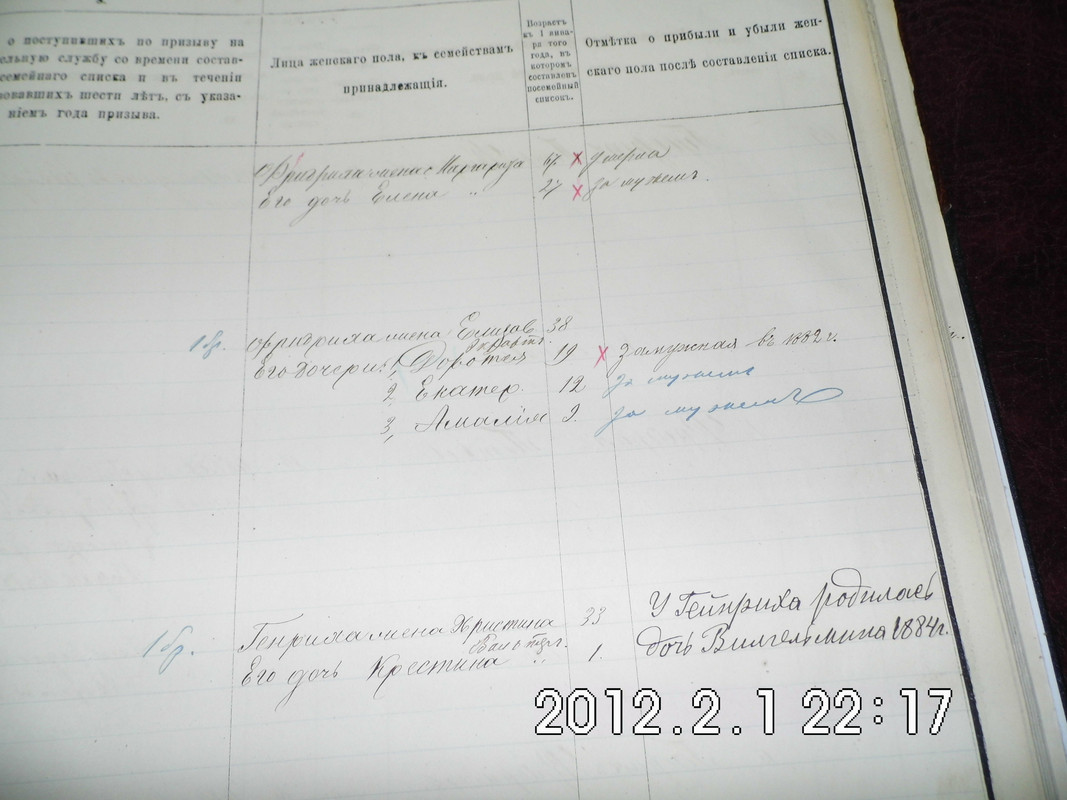 о поступившихъ по призыву на
ельную службу со времени состав-
семейнаго списка и въ теченіи
овавшихъ шести лѣтъ, съ указа-
ніемъ года призыва.
Лица женскаго пола, къ семействамъ
принадлежащія.
Возрастъ
къ 1 янва-
ря того
года, въ
которомъ
составленъ
посемейный
списокъ.
Отмѣтка о прибыли и убыли жен-
скаго пола послѣ составленія списка.
Фридриха жена Маргарета 67. х умерла
Его дочь Елена " 27 х за мужемъ.
1 бр. Фридриха жена Елисав 38
Его дочери: 1, Доротея 19 х Замужная въ 1882 г.
2, Екатер. 12 за мужемъ
3, Амалія 9. за мужемъ
1 бр. Генриха жена Христина 33 У Гейнриха родилась
Вальтер.
Его дочь Крестина " 1. дочь Вилгельмина 1884 г.
2012.2.1 22:17